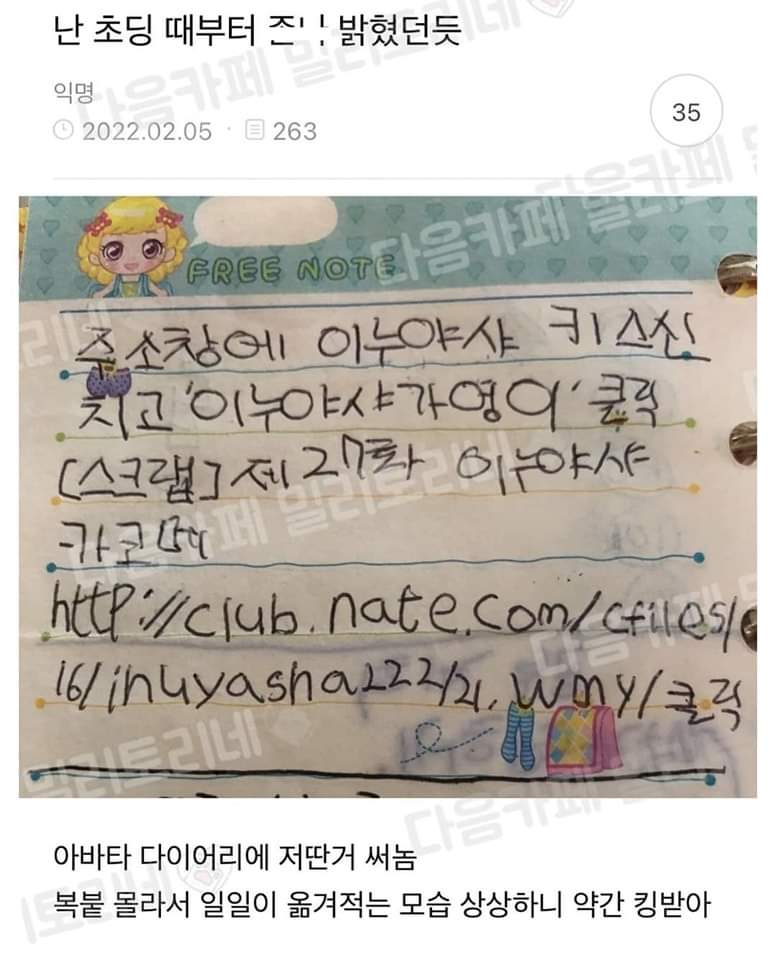 난 초딩 때부터 존나 밝혔던듯
익명
2022.02.05 · 263
35
FREE NOTE
주소창에 이누야샤 키스신
치고 '이누야샤가영이' 클릭
[스크랩] 제27화 이누야샤
카고메
http://club.nate.com/cfiles/
16/inuyasha222/21.wmv/클릭
아바타 다이어리에 저딴거 써놈
복붙 몰라서 일일이 옮겨적는 모습 상상하니 약간 킹받아
다음카페 밀리토리네